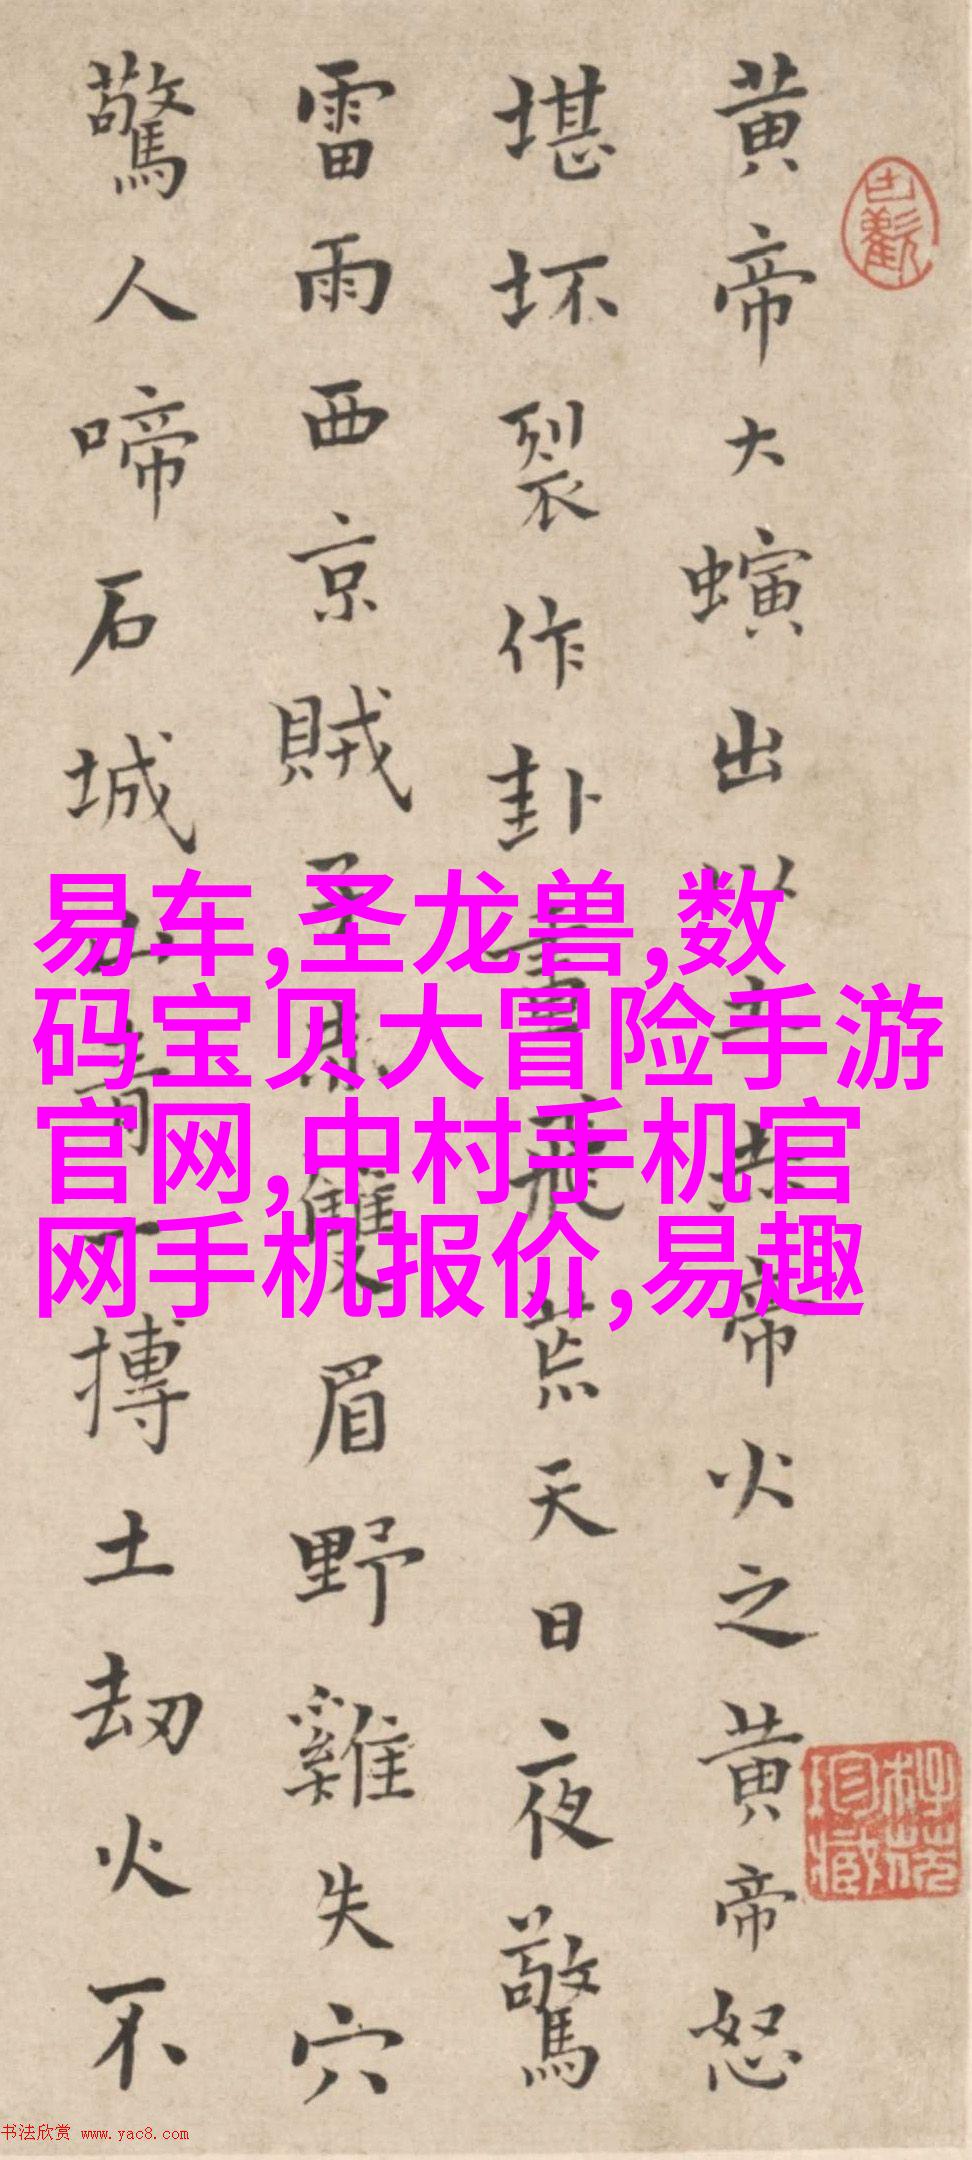 黄帝大螾出土帝火之黄帝怒
堪坏裂作卦畫飛荒天日夜驚
雷雨西京賊雙眉野雞失穴
驚人啼石城山青一摶土劫火不
易车,圣龙兽,数
码宝贝大冒险手游
官网,中村手机官
网手机报价,易趣
书法欣赏 www.yac8.com